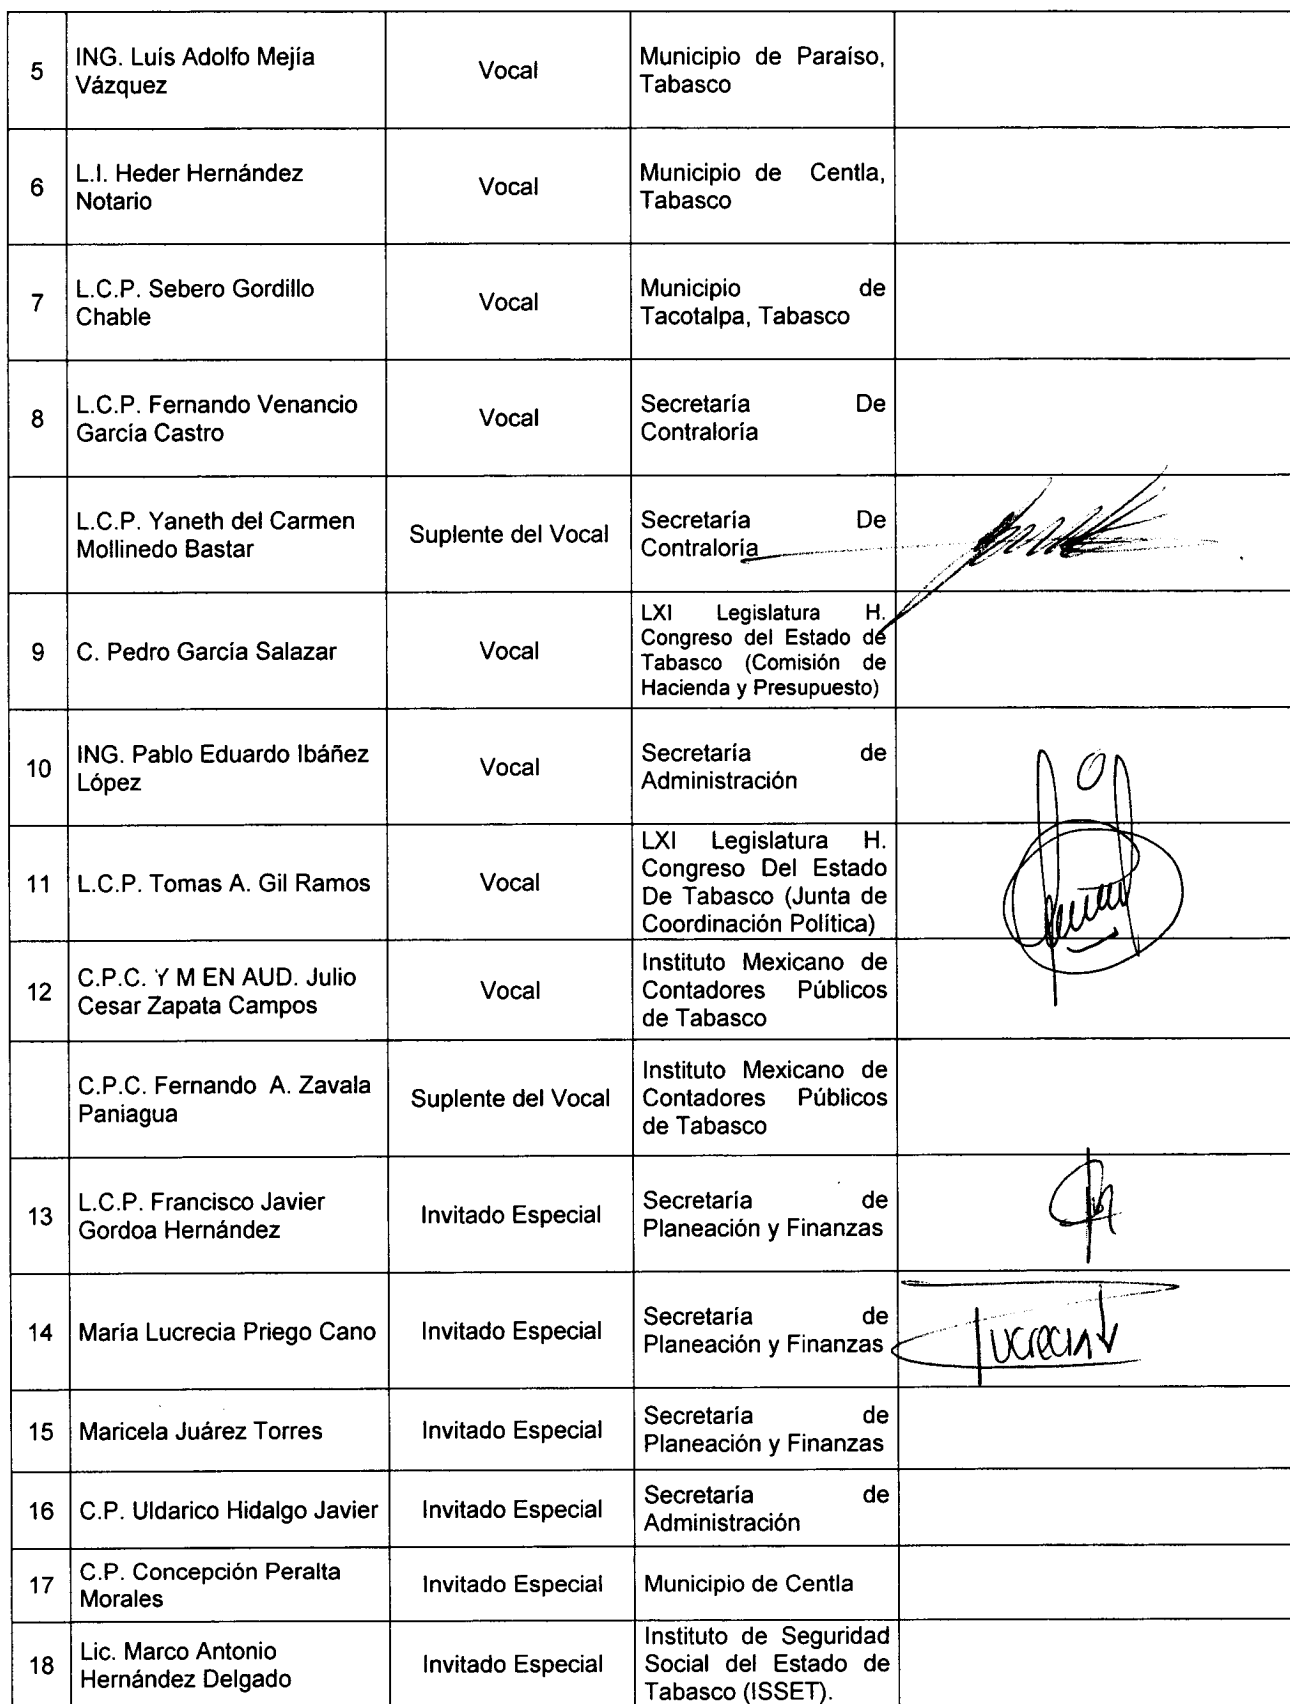 5
ING. Luís Adolfo Mejía
Vázquez
Vocal
Municipio de Paraíso,
Tabasco
6
L.I. Heder Hernández
Notario
Vocal
Municipio de Centla,
Tabasco
7
L.C.P. Sebero Gordillo
Chable
Vocal
Municipio de
Tacotalpa, Tabasco
8
L.C.P. Fernando Venancio
García Castro
Vocal
Secretaría De
Contraloría
L.C.P. Yaneth del Carmen
Mollinedo Bastar
Suplente del Vocal
Secretaría De
Contraloría
9
C. Pedro García Salazar
Vocal
LXI Legislatura H.
Congreso del Estado de
Tabasco (Comisión de
Hacienda y Presupuesto)
10
ING. Pablo Eduardo Ibáñez
López
Vocal
Secretaría de
Administración
11
L.C.P. Tomas A. Gil Ramos
Vocal
LXI Legislatura H.
Congreso Del Estado
De Tabasco (Junta de
Coordinación Política)
12
C.P.C. Y M EN AUD. Julio
Cesar Zapata Campos
Vocal
Instituto Mexicano de
Contadores Públicos
de Tabasco
C.P.C. Fernando A. Zavala
Paniagua
Suplente del Vocal
Instituto Mexicano de
Contadores Públicos
de Tabasco
13
L.C.P. Francisco Javier
Gordoa Hernández
Invitado Especial
Secretaría de
Planeación y Finanzas
14
María Lucrecia Priego Cano
Invitado Especial
Secretaría de
Planeación y Finanzas
Lucrecia
15
Maricela Juárez Torres
Invitado Especial
Secretaría de
Planeación y Finanzas
16
C.P. Uldarico Hidalgo Javier
Invitado Especial
Secretaría de
Administración
17
C.P. Concepción Peralta
Morales
Invitado Especial
Municipio de Centla
18
Lic. Marco Antonio
Hernández Delgado
Invitado Especial
Instituto de Seguridad
Social del Estado de
Tabasco (ISSET).